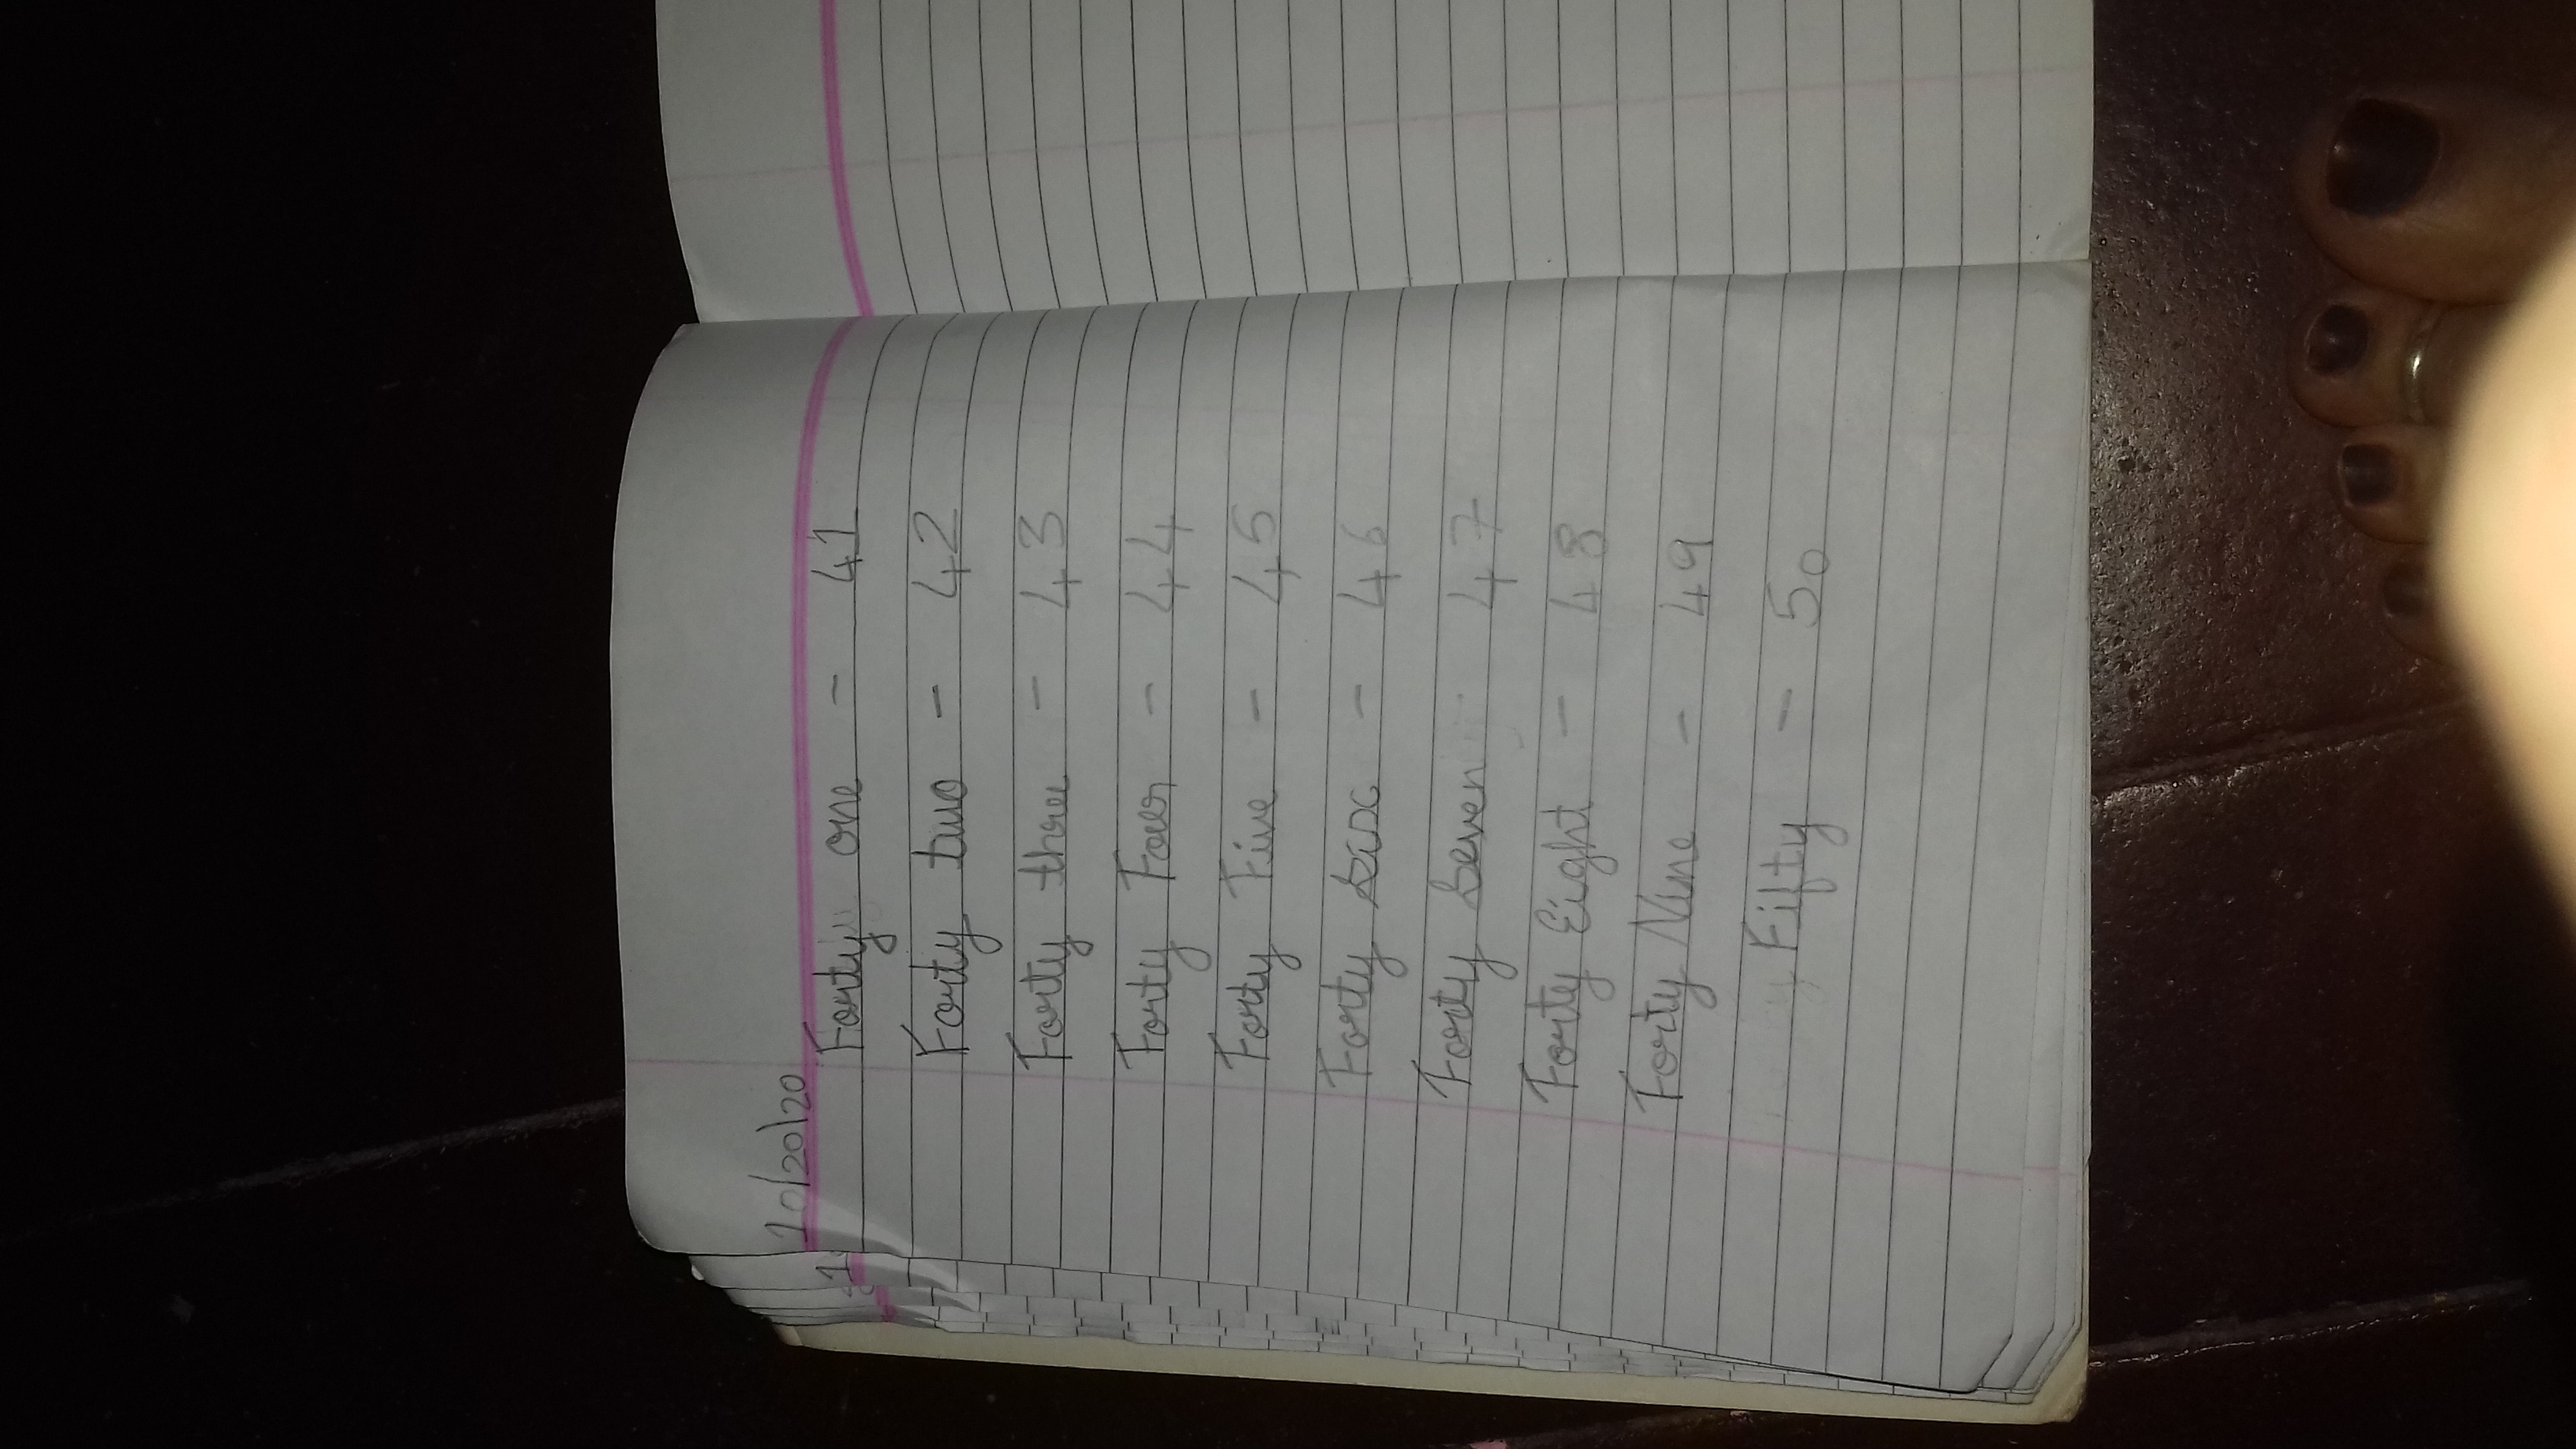 10/20/20
Forty one - 41
Forty two - 42
Forty three - 43
Forty Four - 44
Forty Five - 45
Forty six - 46
Forty Seven 47
Forty Eight - 48
Forty Nine - 49
Fifty - 50